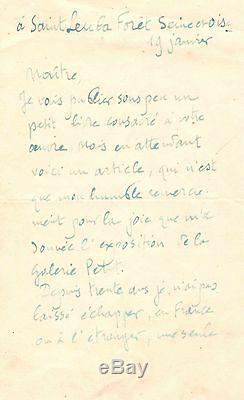 à Saint Leu la Forêt Seine et Oise
19 janvier
Maître,
Je vais publier sous peu un
petit livre consacré à votre
œuvre. Mais en attendant
voici un article, qui n'est
que mon humble remercie-
ment pour la joie que m'a
donnée l'exposition de la
galerie Petit.
Depuis trente ans je n'ai pas
laissé échapper, en France
ou à l'étranger, une seule
ebay